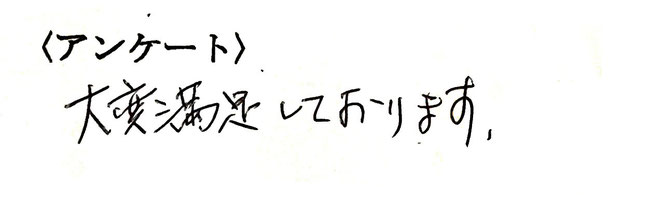 〈アンケート〉
大変満足しております。